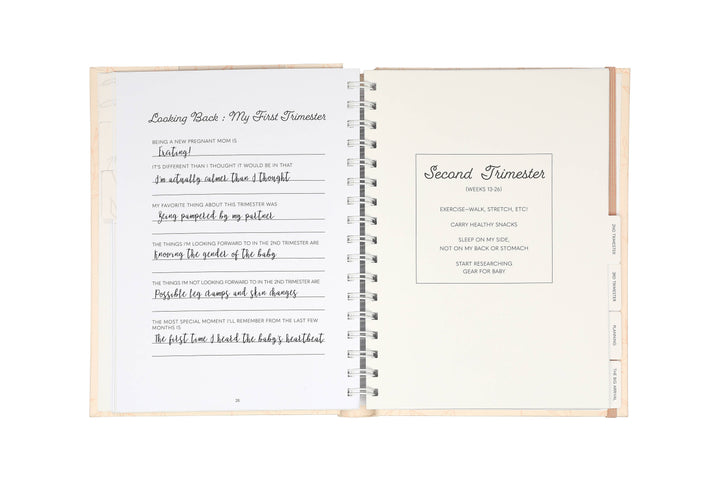 Looking Back : My First Trimester
BEING A NEW PREGNANT MOM IS
Exciting!
IT'S DIFFERENT THAN I THOUGHT IT WOULD BE IN THAT
I'm actually calmer than I thought
MY FAVORITE THING ABOUT THIS TRIMESTER WAS
Being pampered by my partner
THE THINGS I'M LOOKING FORWARD TO IN THE 2ND TRIMESTER ARE
Knowing the gender of the baby
THE THINGS I'M NOT LOOKING FORWARD TO IN THE 2ND TRIMESTER ARE
Possible leg cramps and skin changes
THE MOST SPECIAL MOMENT I'LL REMEMBER FROM THE LAST FEW
MONTHS IS
The first time I heard the baby's heartbeat
26
Second Trimester
(WEEKS 13-26)
EXERCISE—WALK, STRETCH, ETC!
CARRY HEALTHY SNACKS
SLEEP ON MY SIDE,
NOT ON MY BACK OR STOMACH
START RESEARCHING
GEAR FOR BABY
2ND TRIMESTER
3RD TRIMESTER
PLANNING
THE BIG ARRIVAL